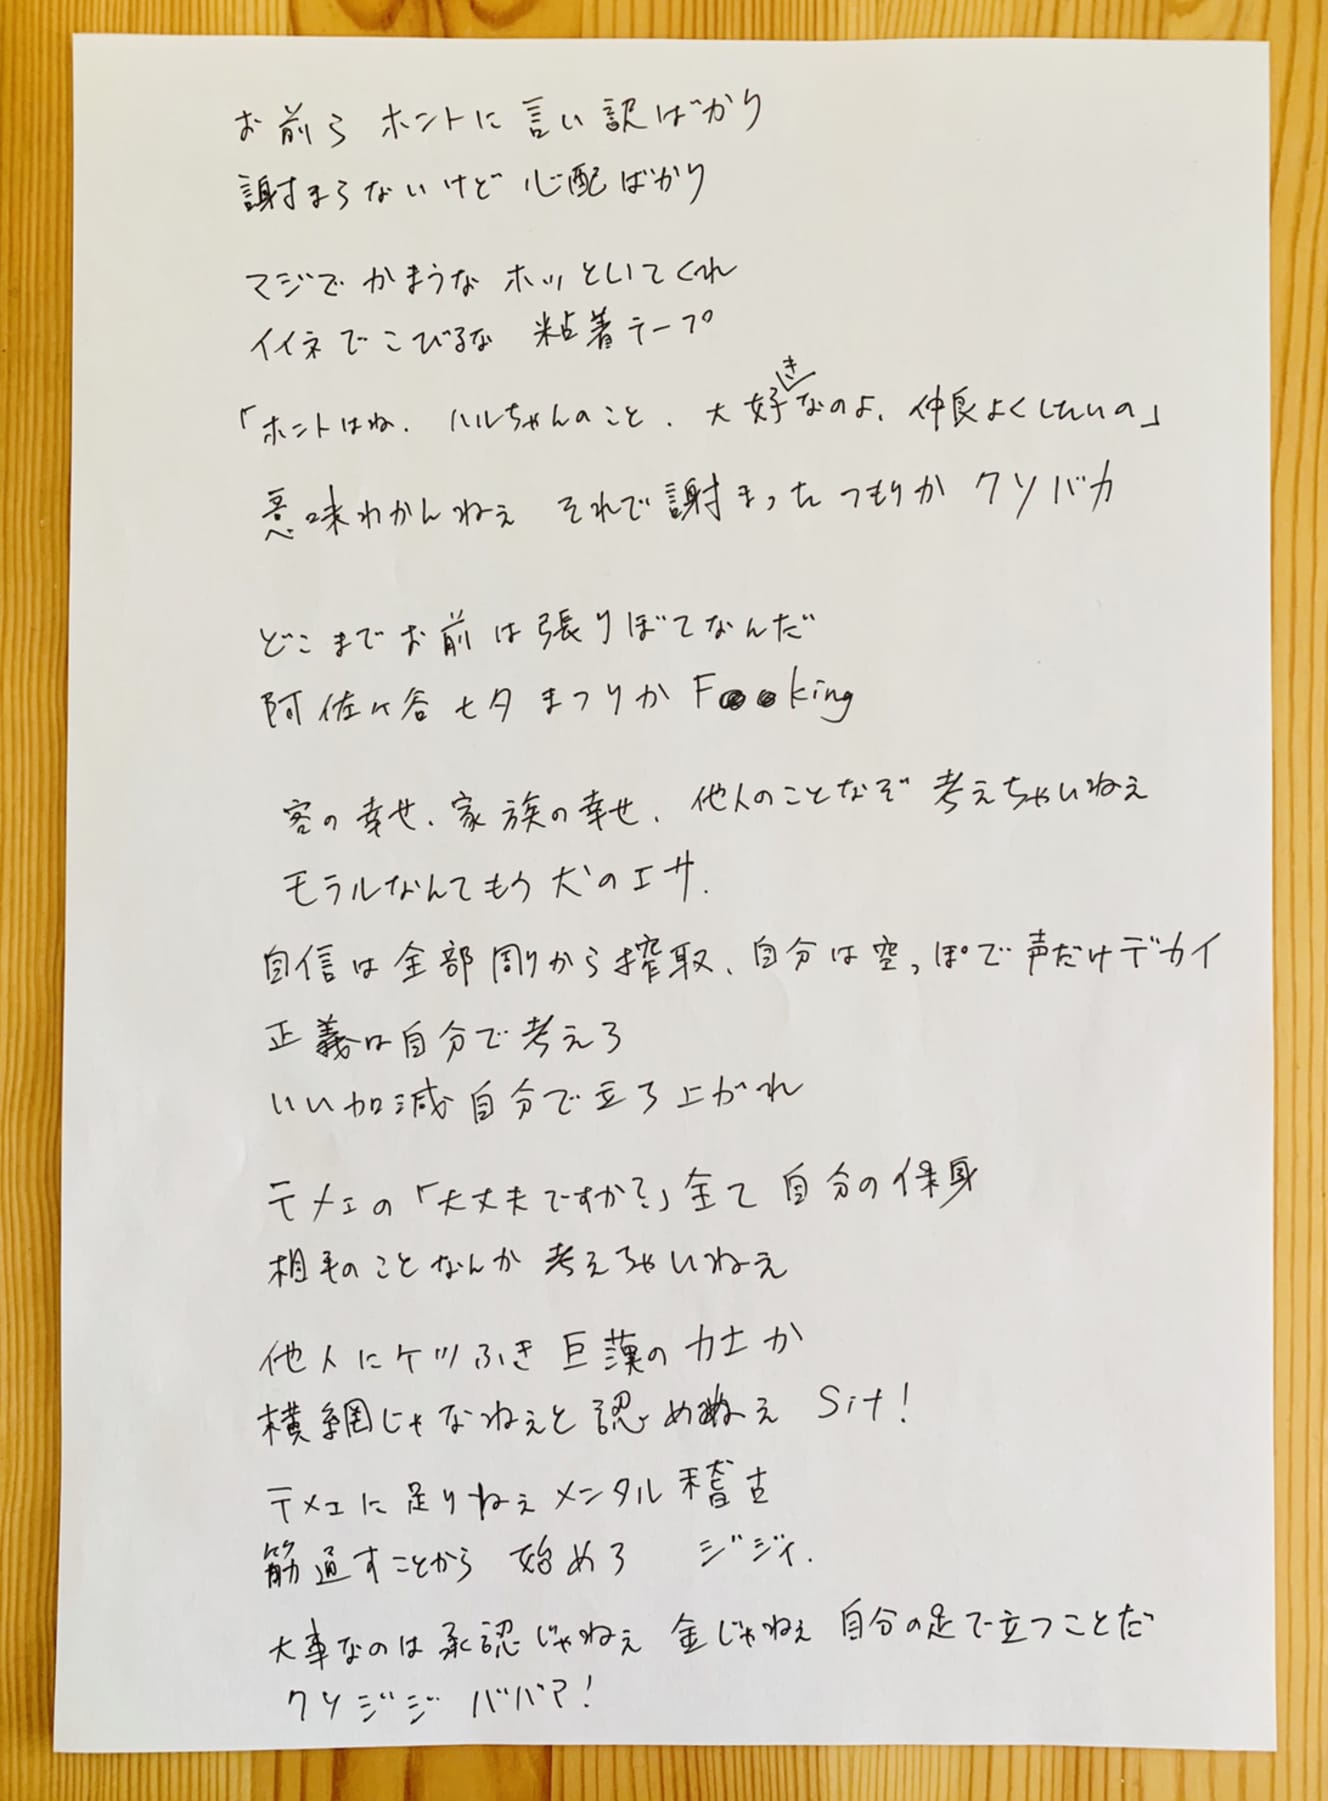 お前ら ホントに言い訳ばかり
謝まらないけど 心配ばかり
マジで かまうな ホッといてくれ
イイネでこびるな 粘着テープ
「ホントはね、ハルちゃんのこと、大好きなのよ、仲良よくしたいの」
意味わかんねぇ それで謝まったつもりか クソバカ
どこまでお前は張りぼてなんだ
阿佐ヶ谷七夕まつりか F●●king
客の幸せ、家族の幸せ、他人のことなぞ 考えちゃいねぇ
モラルなんてもう犬のエサ.
自信は全部周りから搾取、自分は空っぽで声だけデカイ
正義は自分で考えろ
いい加減自分で立ち上がれ
テメェの「大丈夫ですか?」全て 自分の保身
相手のことなんか 考えちゃいねぇ
他人にケツふき 巨漢の力士か
横綱じゃなねぇと 認めぬぇ Sit!
テメェに足りねぇメンタル稽古
筋通すことから 始めろ ジジィ.
大事なのは承認じゃねぇ 金じゃねぇ 自分の足で立つことだ
クソジジ ババア!